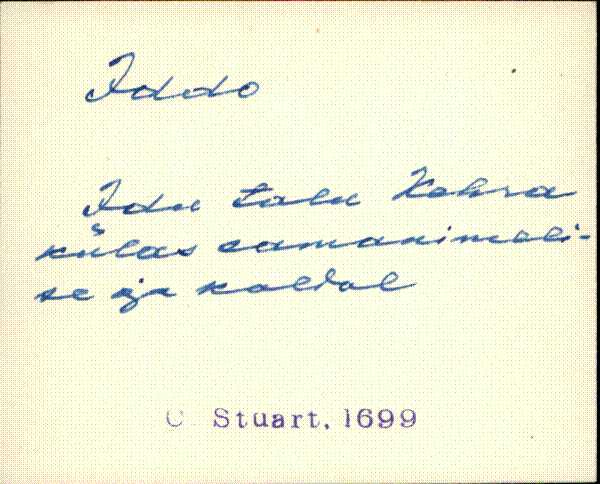 Iddo
Idu talu Kehra
külas samanimeli-
se oja kaldal
C Stuart, 1699